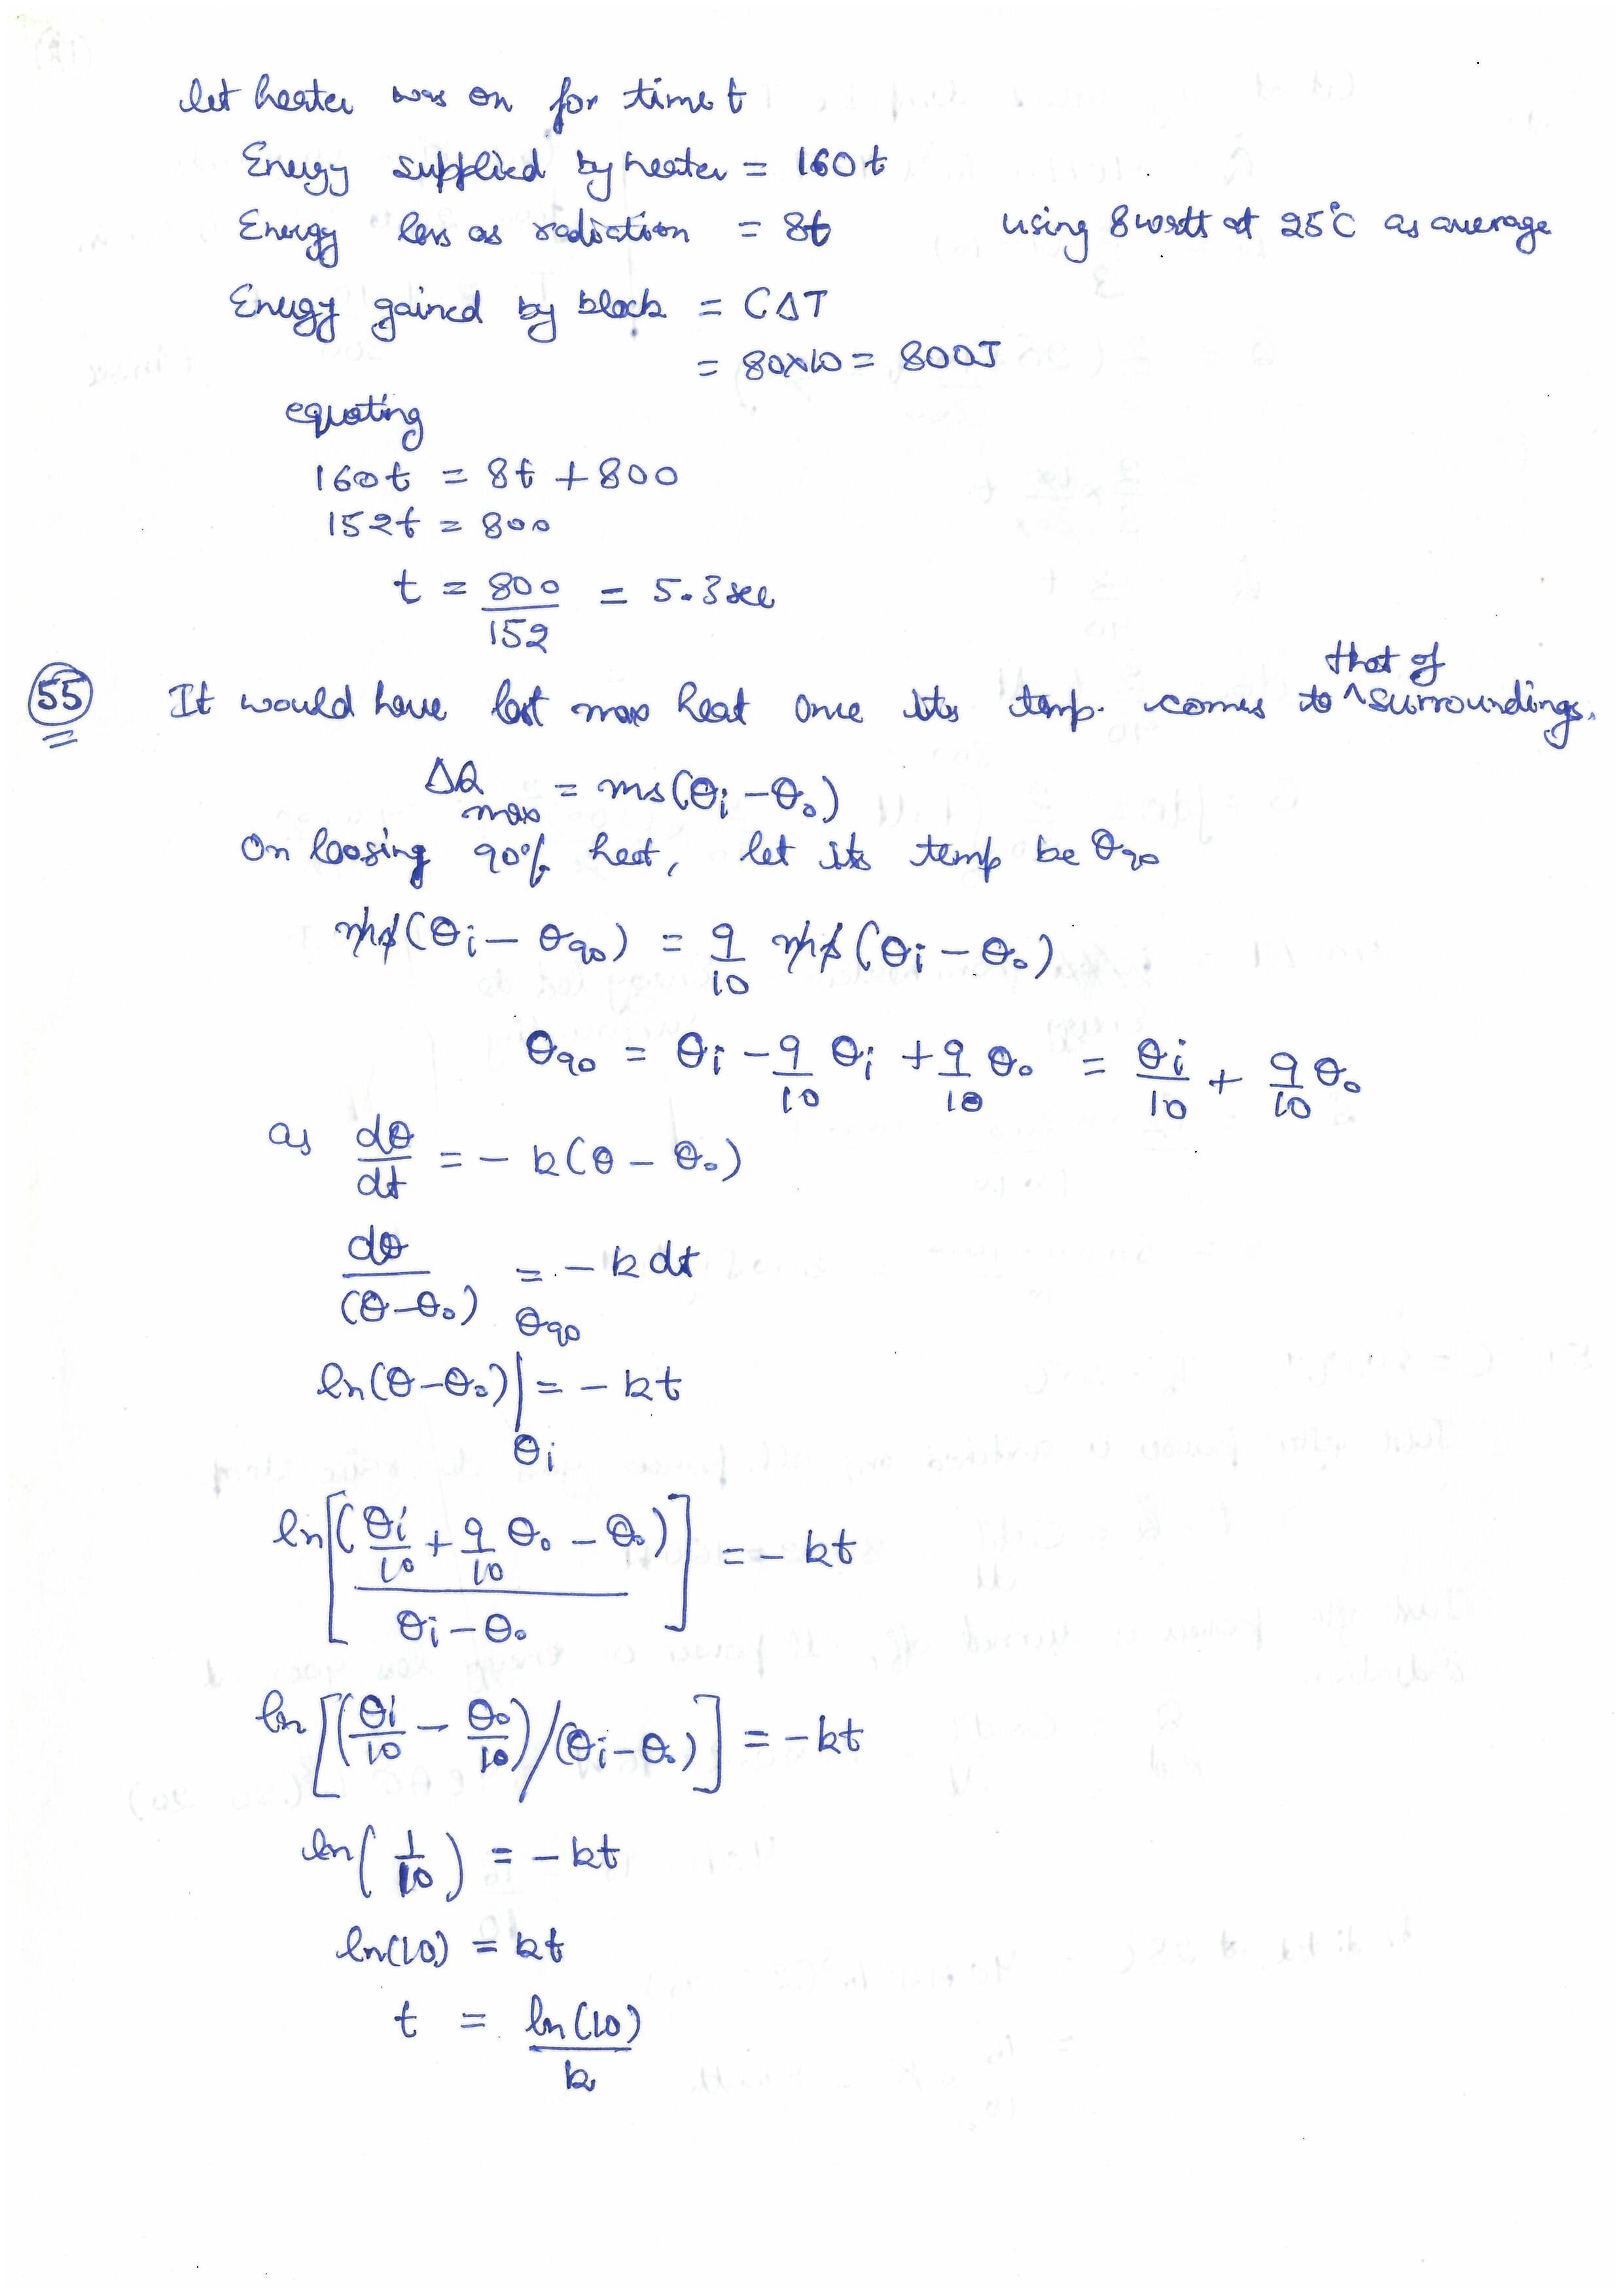 let heater was on for time t
Energy supplied by heater = 160t
Energy loss as radiation = 8t using 8 watt at 25°C as average
Energy gained by block = CΔT
= 80×10 = 800J
equating
160t = 8t + 800
152t = 800
t = 800/152 = 5.3 sec
55 It would have lost max heat once its temp. comes to ^that of surroundings.
ΔQmax = ms(θi – θ₀)
On loosing 90% heat, let its temp be θ90
ms(θi – θ90) = 9/10 ms(θi – θ₀)
θ90 = θi – 9/10 θi + 9/10 θ₀ = θi/10 + 9/10 θ₀
as dθ/dt = – k(θ – θ₀)
dθ/(θ–θ₀) = – k dt
ln(θ–θ₀)|θi^θ90 = – kt
ln[(θi/10 + 9/10 θ₀ – θ₀)/(θi – θ₀)] = – kt
ln[(θi/10 – θ₀/10)/(θi–θ₀)] = – kt
ln(1/10) = – kt
ln(10) = kt
t = ln(10)/k